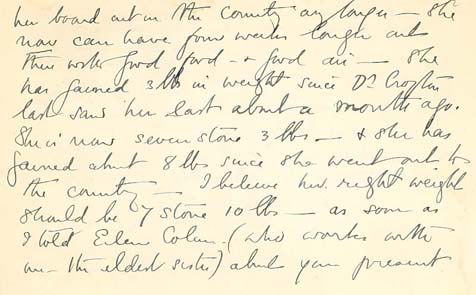 her board out in the country any longer – she
now can have four weeks longer out
there with good food – & good air – she
has gained 3 lbs in weight since Dr Crofton
last saw her last about a month ago.
She is now seven stone 3 lbs – & she has
gained about 8 lbs since she went out to
the country – I believe her right weight
should be 7 stone 10 lbs – as soon as
I told Eileen (who works with
me – the eldest sister) about your present